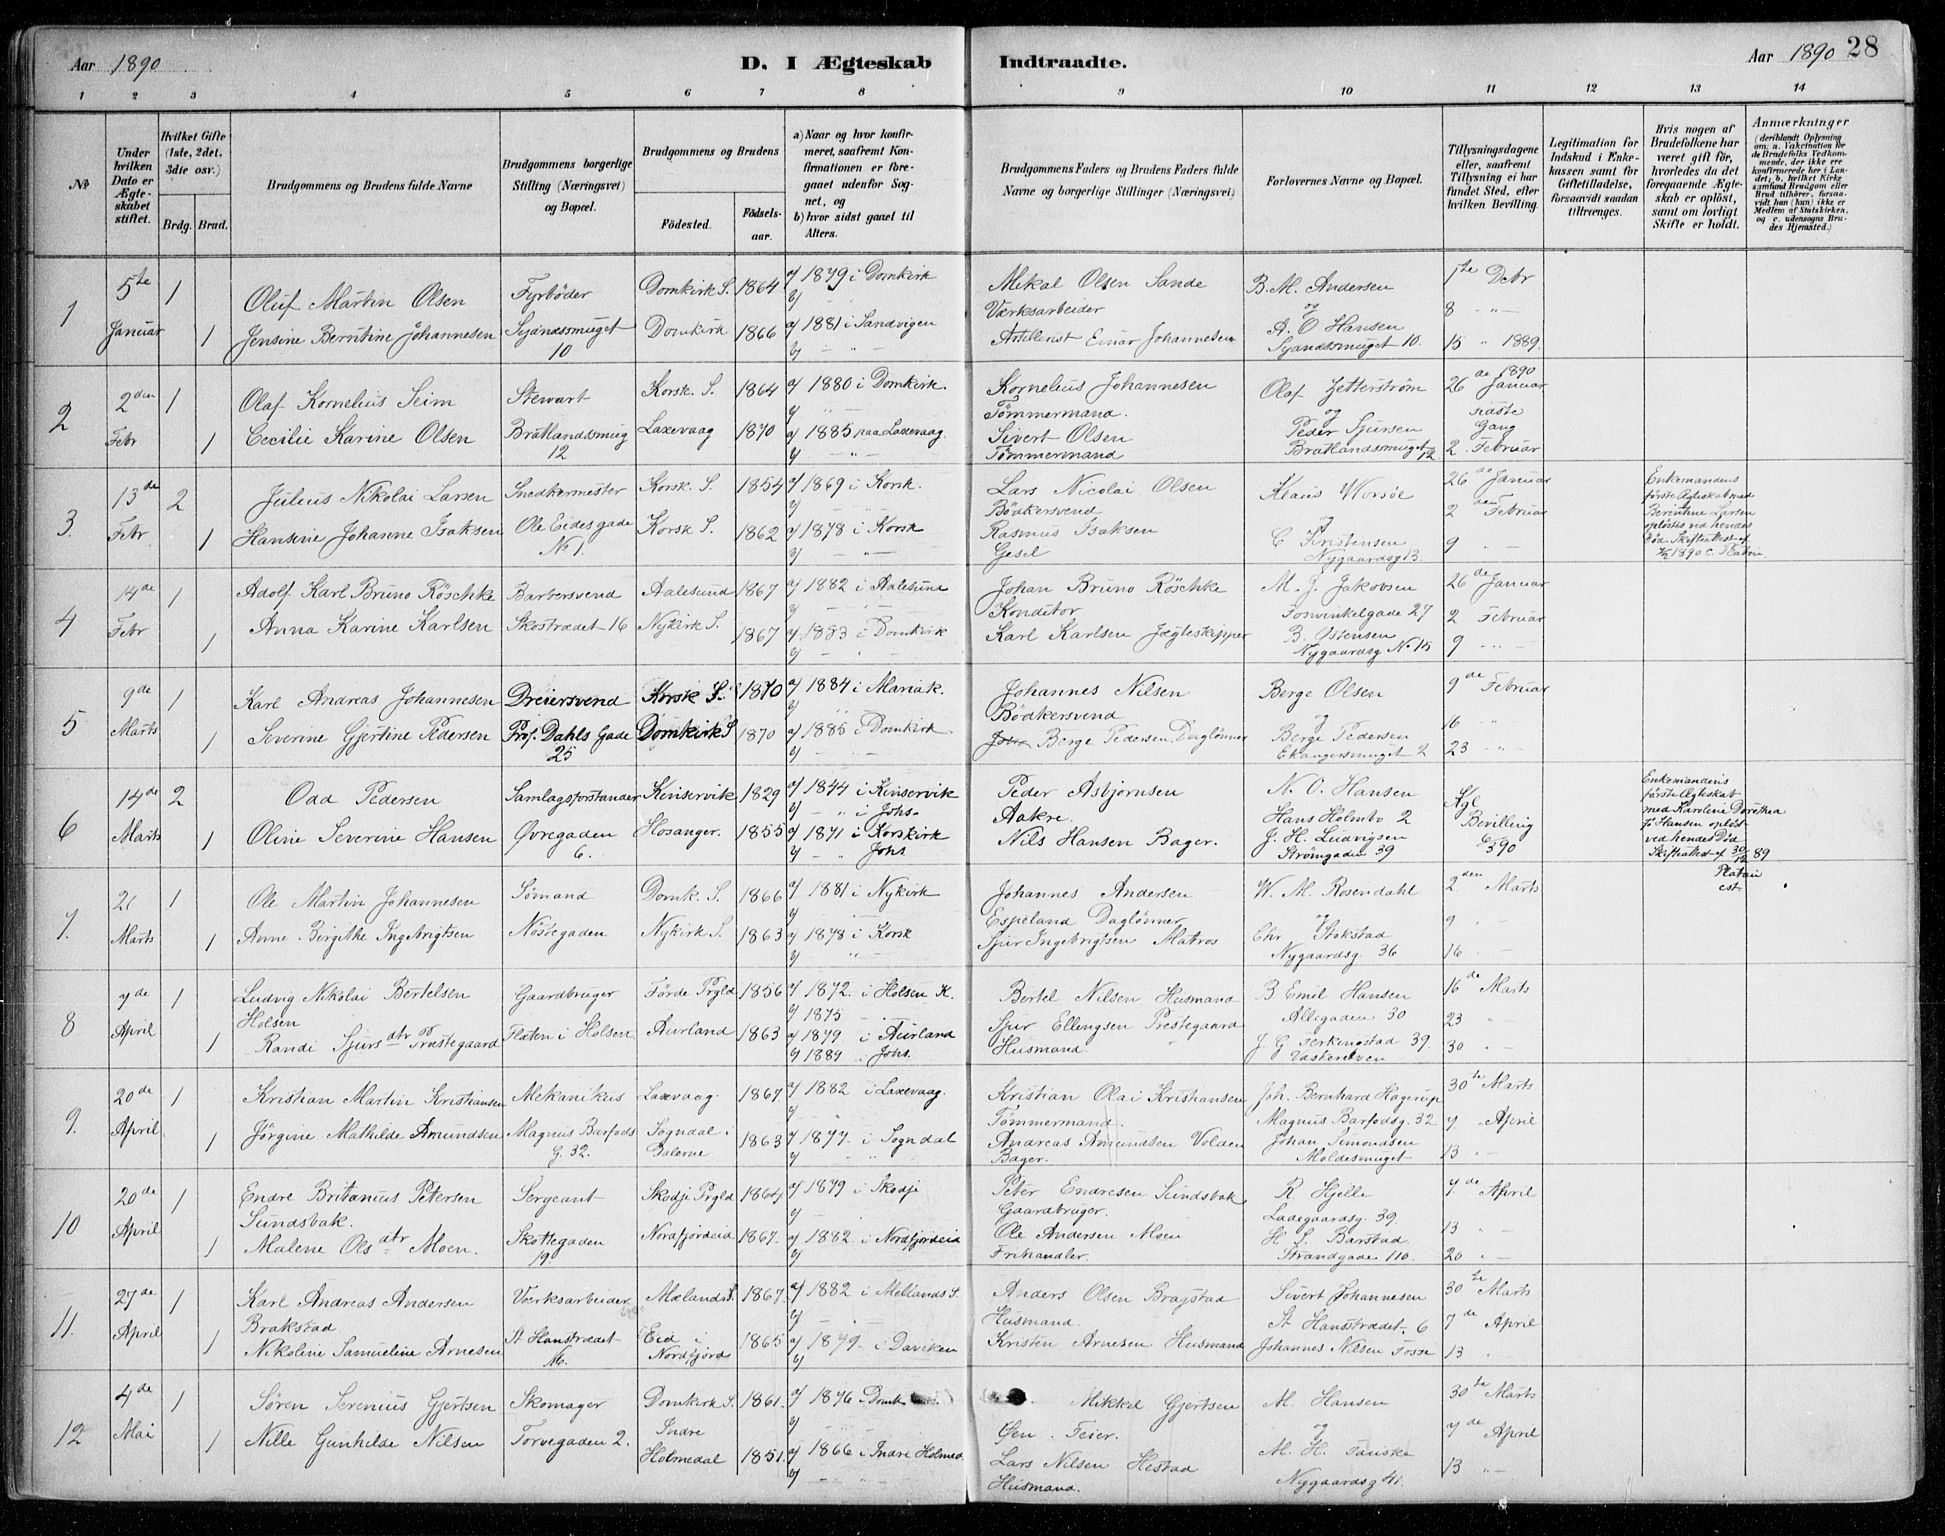 Aar 1890 D. I Ægteskab Indtraadte. Aar 1890 28
1 2 3 4 5 6 7 8 9 10 11 12 13 14
No
Under hvilken Dato er Ægteskabet stiftet.
Hvilket Gifte (1ste, 2det, 3die osv.)
Brdg. Brud.
Brudgommens og Brudens fulde Navne
Brudgommens borgerlige Stilling (Næringsvei) og Bopæl.
Brudgommens og Brudens
Fødested. Fødselsaar.
a) Naar og hvor konfirmeret, saafremt Konfirmationen er foregaaet udenfor Sognet, og
b) hvor sidst gaaet til Alters.
Brudgommens Faders og Brudens Faders fulde Navne og borgerlige Stillinger (Næringsvei)
Forlovernes Navne og Bopæl.
Tillysningsdagene eller, saafremt Tillysning ei har fundet Sted, efter hvilken Bevilling.
Legitimation for Indskud i Enkekassen samt for Giftetilladelse, forsaavidt saadan tiltrænges.
Hvis nogen af Brudefolkene har været gift før, hvorledes da det foregaaende Ægteskab er opløst, samt om lovligt Skifte er holdt.
Anmærkninger
(deriblandt Oplysning om: a. Vakcination for de Brudefolks Vedkommende, der ikke ere konfirmerede her i Landet; b. hvilket Kirkesamfund Brudgom eller Brud tilhører, forsaavidt han (hun) ikke er Medlem af Statskirken, og c. udensogns Brudes Hjemsted.)
1 5te Januar 1 Oluf Martin Olsen Fyrbøder Domkirk S. 1864 a) 1879 i Domkirk Mekal Olsen Sande B. M. Andersen 1ste Decbr
b) Værksarbeider og 8 " –
1 Jensine Berntine Johannesen 10 Domkirk 1866 a) 1881 i Sandvigen Artillerist Einar Johannesen A. O Hansen 10. 15 " 1889.
2 2den Febr 1 Olaf Kornelius Seim Stewart Korsk. S. 1864 a) 1880 i Domkirk. Kornelius Johannesen Olaf Zetterstrøm 26de Januar 1890
Tømmermand. og næste Gang
1 Cecilie Karine Olsen Bratlandssmug 12 Laxevaag 1870 a) 1885 paa Laxevaag. Sivert Olsen Peder Sjursen
Tømmermand Bratlandssmuget 12 2. Februar
3. 13de Febr 2 Julius Nikolai Larsen Snedkermester Korsk. S. 1854 a) 1869 i Korsk. Lars Nicolai Olsen Klaus Worsøe 26de Januar Enkemandens første Ægteskab med Berinthe Larsen opløstes ved hendes Død.
Bødkersvend og 2den Februar
1 Hansine Johanne Isaksen Ole Eidesgade No 1. Korsk S. 1862 a) 1878 i Korsk Rasmus Isaksen C Kristensen 9 " –
Nygaardsg 13.
4 14de Febr 1 Adolf Karl Bruno Röschke Barbersvend Aalesund 1867 a) 1882 i Aalesund Johan Bruno Röschke M. J. Jakobsen 26de Januar
Konditor Fosvinkelgade 27 2 Februar
1 Anna Karine Karlsen Skostrædet 16 Nykirk S. 1867 a) 1883 i Domkirk Karl Karlsen Jægteskipper B. Ostensen 9 " –
Nygaardsg No 15
5 9de Marts 1 Karl Andreas Johannesen Dreiersvend Korsk S. 1870 a) 1884 i Mariak. Johannes Nilsen Berge Olsen 9de Februar
Bødkersvend og 16 "
1 Severine Gjertine Pedersen Prof. Dahls Gade 25 Domkirk S 1870 a) 1885 i Domkirk Berge Pedersen Daglønner Berge Pedersen 23 " –
Ekangersmuget 2
6 14de Marts 2 Odd Pedersen Samlagsforstander Kinservik 1829 a) 1844 i Kinservik Peder Asbjørnsen N. O. Hansen Kgl Bevilling 6 3 90 Enkemandens første Ægteskab med Karoline Dorothea Hansen opløst ved hendes Død Skifteattest af 30/12 89
b) – " i Johs. Aakre. Hans Holmbo 2
1 Oline Severine Hansen Øvregaden 6. Hosanger. 1855 a) 1871 i Korskirk Nils Hansen Bager. J. H. Ludvigsen
b) – " Johs Strømgaden 39
7. 21 Marts 1 Ole Martin Johannesen Sømand Domk. S. 1866 a) 1881 i Nykirk Johannes Andersen W. M. Rosendahl 2den Marts
Espeland Daglønner og 9 "
1 Anne Birgithe Ingebrigtsen Nøstegaden Nykirk S. 1863 a) 1878 i Korsk Sjur Ingebrigtsen Matros Chr Stokstad 16 –
Nygaardsg. 36
8 7de April 1 Ludvig Nikolai Bertelsen Holsen Gaardbruger Förde Prgld 1856 a) 1872. i Holsen K. Bertel Nilsen Husmand B Emil Hansen 16de Marts
b) 1875 Allegaden 30 23 "
1 Randi Sjursdtr Præstegaard Flaten i Holsen Aurland 1863 a) 1879 i Aurland Sjur Ellengsen Prestegaard J. G Ferkingstad 39. 30 "
b) 1889 i Johs. Husmand.
9. 20de April 1 Kristian Martin Kristiansen Mekanikus Laxevaag 1867. a) 1882 i Laxevaag. Kristian Olai Kristiansen Joh. Bernhard Hagerup 30te Marts
Tømmermand. Magnus Barfodsg. 32 7. April
1 Jørgine Mathilde Amundsen Magnus Barfods G. 32. Sogndal i Dalerne 1863 a) 1877. i Sogndal Andreas Amundsen Volden Johan Simondsen 13 "
Bager. Moldesmuget
10 20de April 1 Endre Britanius Petersen Sundsbak. Sergeant Skodje Prgld 1864 a) 1879 i Skodje Peter Endresen Sundsbak R Hjelle 7de April
Gaardbruger. Ladegaardsg. 39. 13 "
1 Malene Olsdtr Moen. Skottegaden 19. Nordfjordeid 1867. a) 1882. i Nordfjordeid Ole Andersen Moen H. S. Barstad. 20 " –
Frihandler. Strandgade 110.
11. 27de April 1 Karl Andreas Andersen Brakstad Værksarbeider Mælands S. 1867. a) 1882 i Mellands S. Anders Olsen Bragstad Sivert Johannesen 30te Marts
Husmand. St Hansstrædet. 6 7de April
1 Nikoline Samueline Arnesen St Hanstrædet Eid i Nordfjord 1865 a) 1879. i Daviken Kristen Arnesen Husmand Johannes Nilsen Fosse 13 "
12 4de Mai 1 Søren Serenius Gjertsen Skomager Domkirk S. 1861. a) 1876 i Domk Mikkel Gjertsen M. Hansen 30te Marts
Øen. Feier. og 7de April
1 Nille Gunhilde Nilsen Torvegaden 2. Indre Holmedal 1851. a) 1866 i Indre Holmed. Lars Nilsen Hestad M. H. Fanske 13 " –
Husmand. Nygaardsg 41.